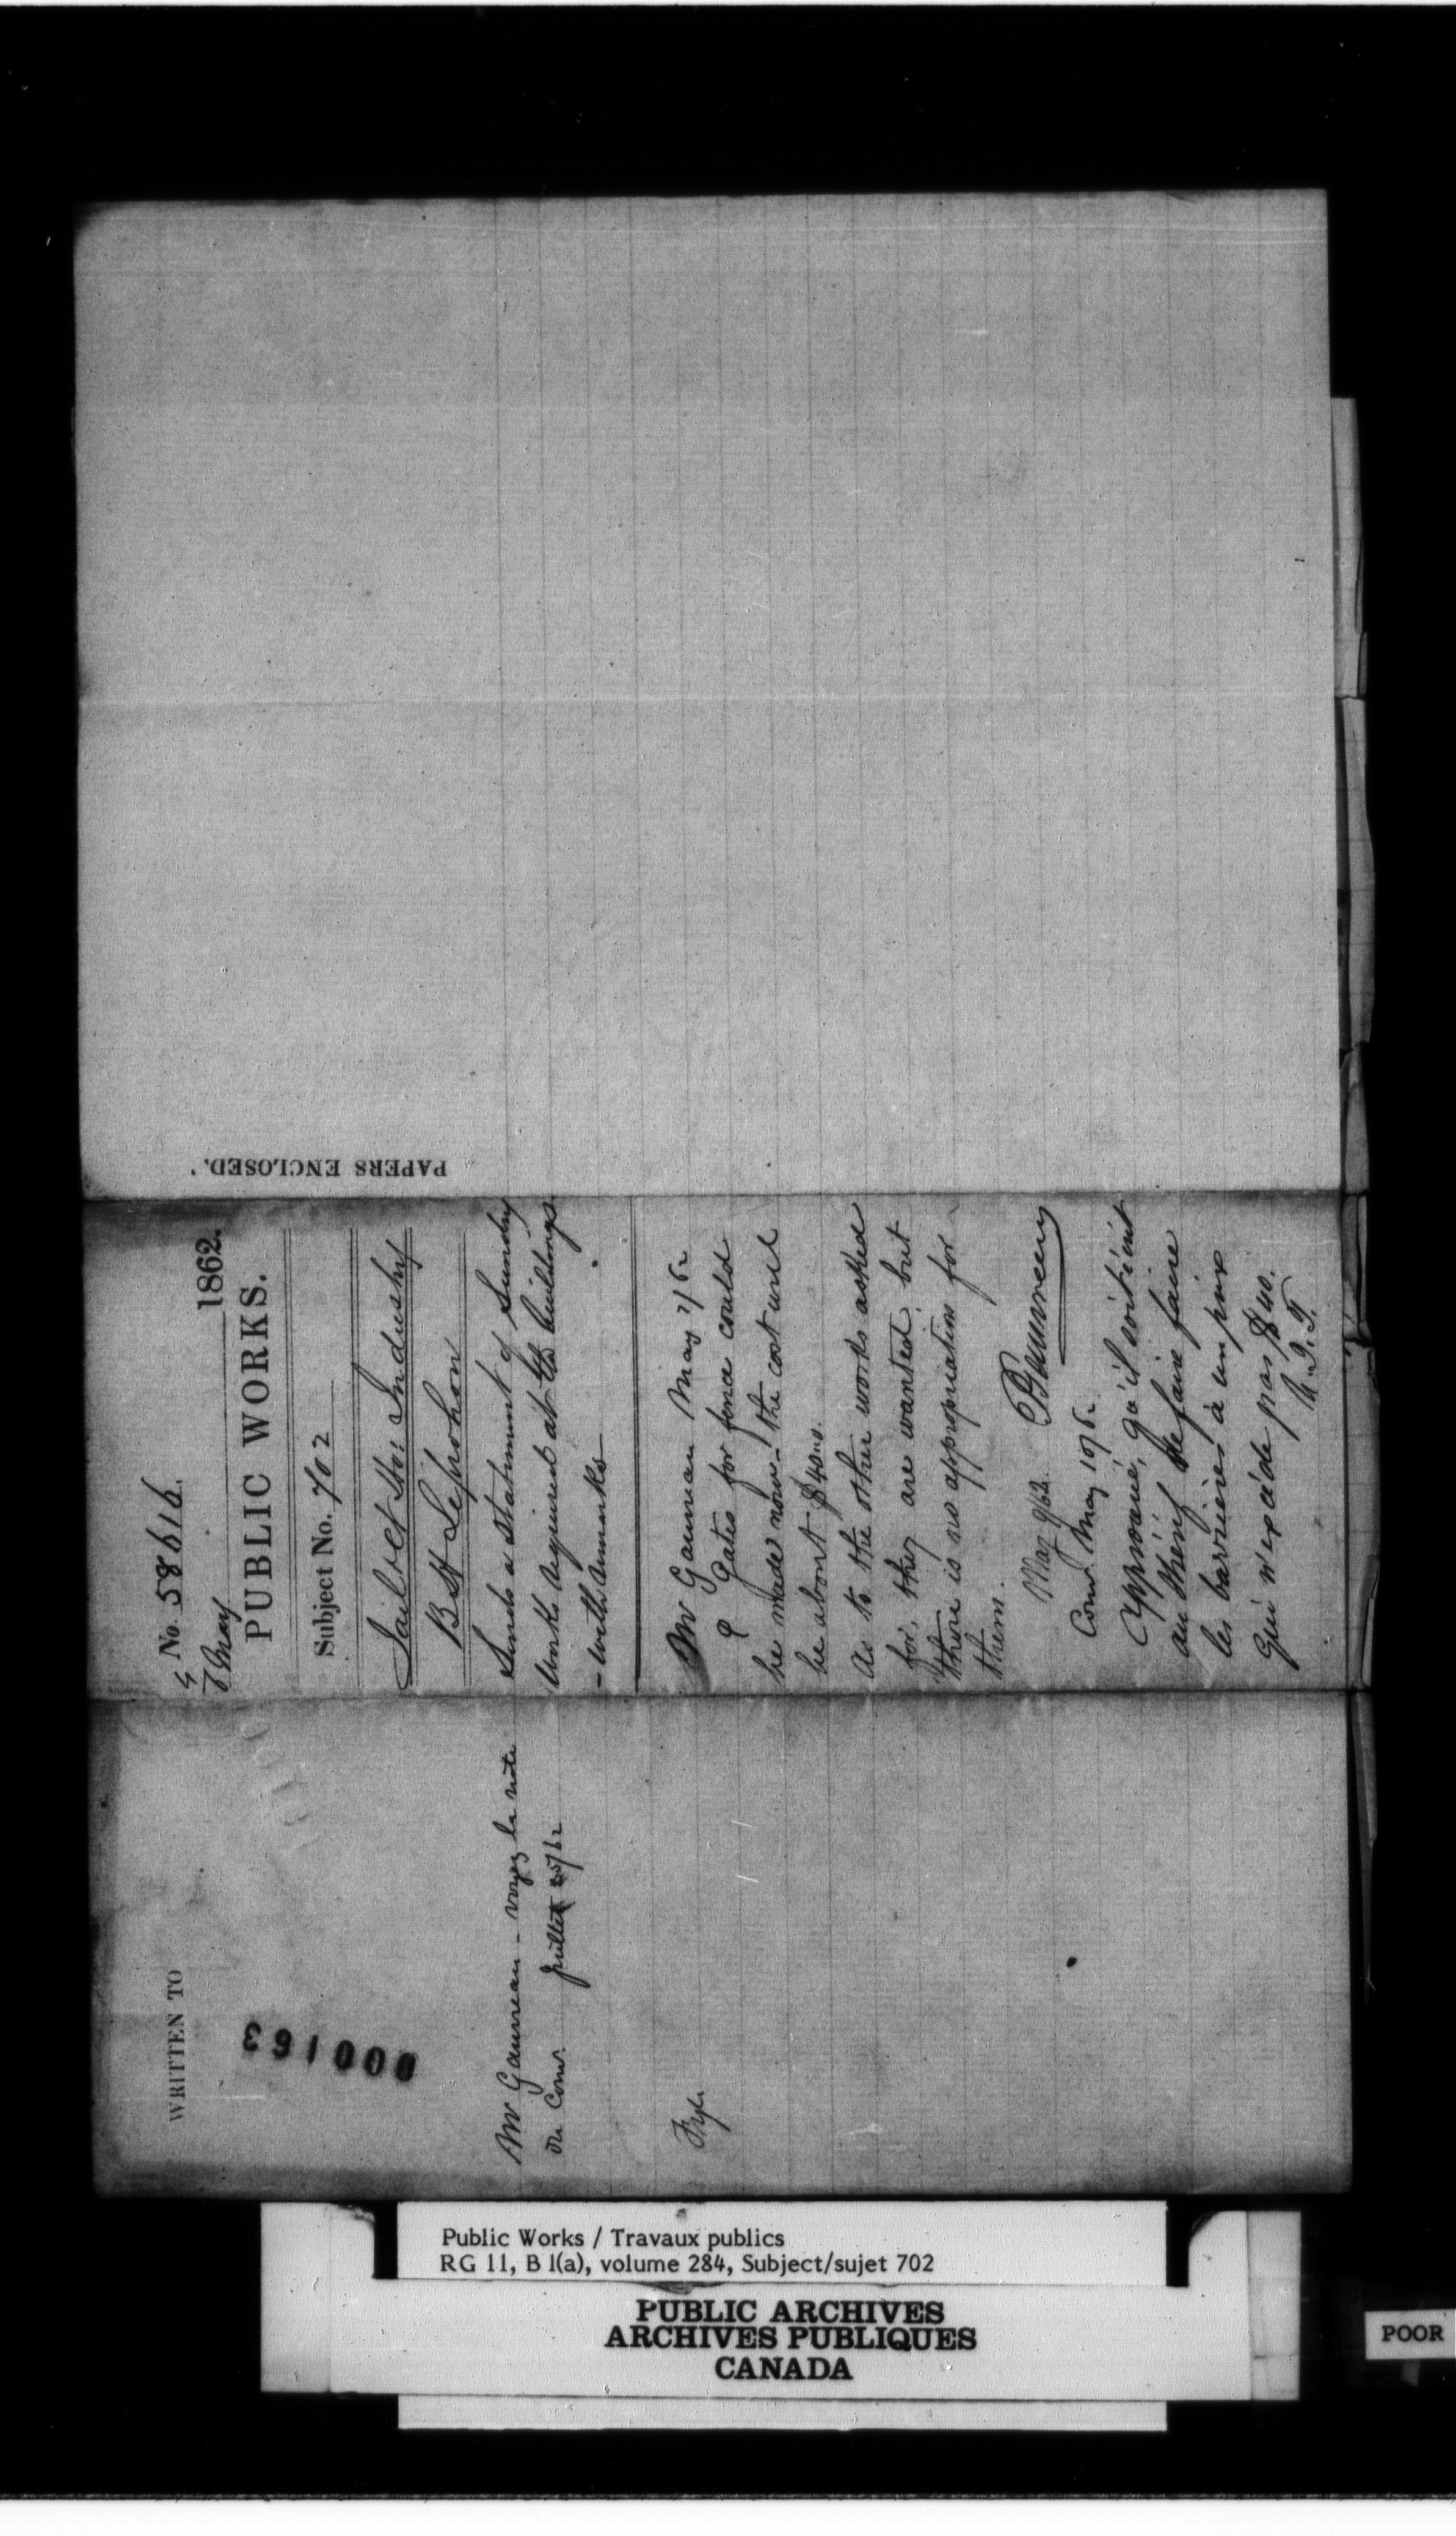 No. 58616.
7 May 1862.
PUBLIC WORKS.
Subject No. 702
Jail & Ct Hse Industry
B H Leprohon
Sends a statement of sundry
works required at the buildings
- with remarks
Mr Gauvreau May 7/62
Gates for fence could
be made now - the cost will
be about $40.00.
As to the other works asked
for, they are wanted, but
there is no appropriation for
them.
May 9/62. P Gauvreau
Com. May 10/62
Approuvé, qu'il soit écrit
au Shérif de faire faire
les barrières à un prix
qui n'excéde pas $40.
PAPERS ENCLOSED.
WRITTEN TO
000163
Mr Gauvreau - voyez la note
du Com. juillet 25/62
Fyle
Public Works / Travaux publics
RG 11, B 1(a), volume 284, Subject/sujet 702
PUBLIC ARCHIVES
ARCHIVES PUBLIQUES
CANADA
POOR